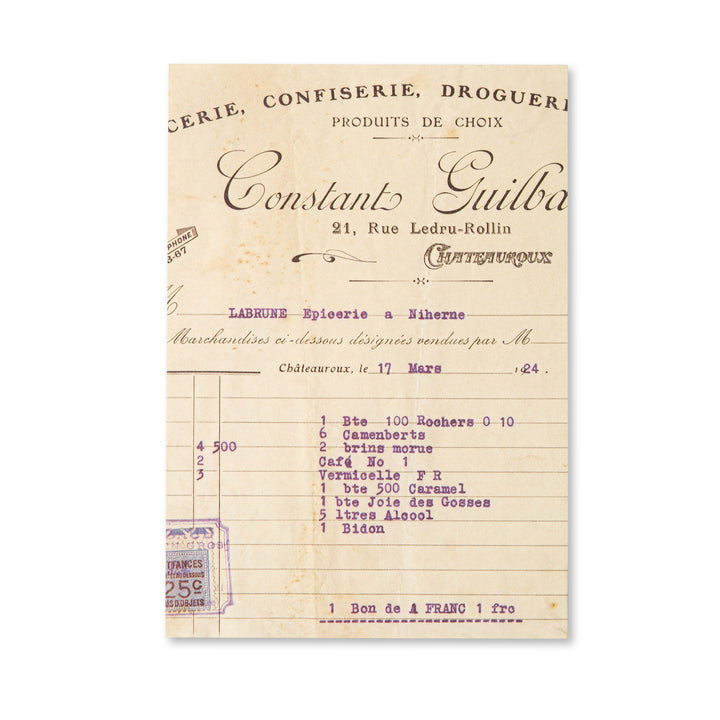 CERIE, CONFISERIE, DROGUERI
PRODUITS DE CHOIX
Constant Guilba
21, Rue Ledru-Rollin
PHONE
3-67
CHATEAUROUX
M
LABRUNE Epicerie a Niherne
Marchandises ci-dessous désignées vendues par M
Châteauroux, le 17 Mars 1924.
1 Bte 100 Rochers 0 10
6 Camemberts
4 500 2 brins morue
2 Café No 1
3 Vermicelle F R
1 bte 500 Caramel
1 bte Joie des Gosses
5 ltres Alcool
1 Bidon
TFANCES
25c
S D'OBJETS
1 Bon de 1 FRANC 1 frc